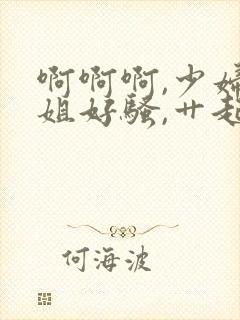 啊啊啊,少婦
姐好騷,艹起
何海波